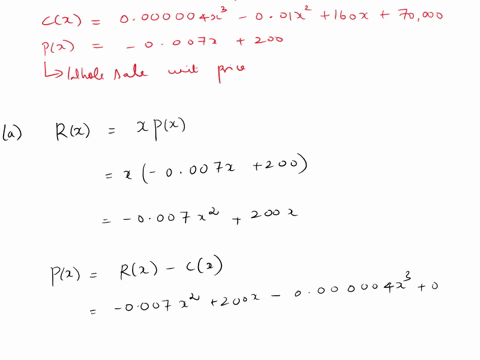 C(x) = 0.000004x³ - 0.01x² + 160x + 70,000
p(x) = - 0.007x + 200
↳ Whole sale unit price
(a) R(x) = x p(x)
= x (-0.007x + 200)
= -0.007x² + 200x
P(x) = R(x) - C(x)
= -0.007x² + 200x - 0.000004x³ + 0